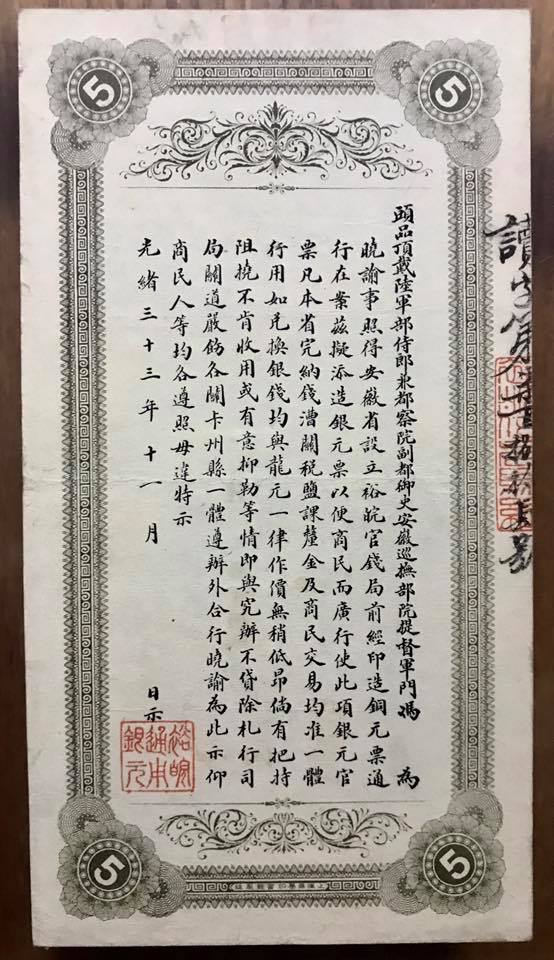 頭品頂戴陸軍部侍郎兼都察院副都御史安徽巡撫部院提督軍門馮 為
曉諭事照得安徽省設立裕皖官錢局前經印造銅元票通
行在案茲擬添造銀元票以便商民而廣行使此項銀元官
票凡本省完納錢漕關稅鹽課釐金及商民交易均准一體
行用如兑換銀錢均與龍元一律作價無稍低昂倘有把持
阻撓不肯收用或有意抑勒等情即與究辦不貸除札行司
局關道嚴飭各關卡州縣一體遵辦外合行曉諭為此示仰
商民人等均各遵照毋違特示
光緒三十三年十一月 日示
裕皖
通本
銀元
5
5
5
5